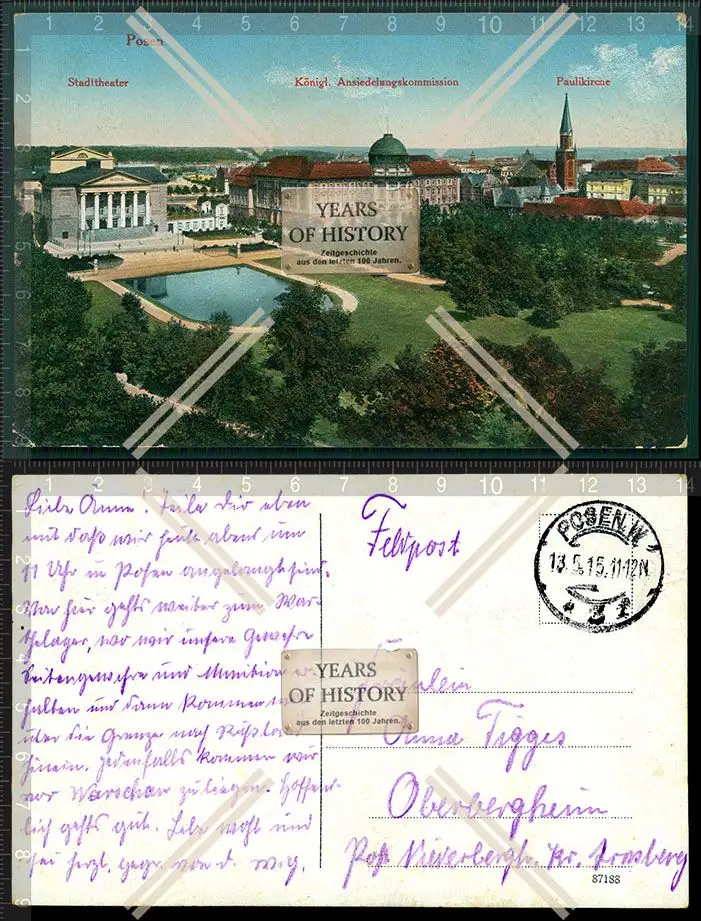 1 2 3 4 5 6 7 8 9 10 11 12 13 14
Posen
Stadttheater
Königl. Ansiedelungskommission
Paulikirche
YEARS
OF HISTORY
Zeitgeschichte
aus den letzten 100 Jahren.
1 2 3 4 5 6 7 8 9 10 11 12 13 14
Liebe Anna! Teile dir eben
mit daß wir heute abend um
11 Uhr in Posen angelangt sind.
Von hier gehts weiter zum War-
thelager, wo wir unsere Gewehre
Seitengewehre und Munition er-
halten und dann kommen
über die Grenze nach
hinein. Jedenfalls kommen wir
vor Warschau zu liegen. Hoffent-
lich gehts gut. Lebe wohl und
sei herzl. gegr. von d.
Feldpost
POSEN.W.
13.5.15.11-12N.
* 3 1
YEARS
OF HISTORY
Zeitgeschichte
aus den letzten 100 Jahren.
Fräulein
Anna Tigges
Oberbergheim
Post Niederbergh. Kr. Arnsberg
87188